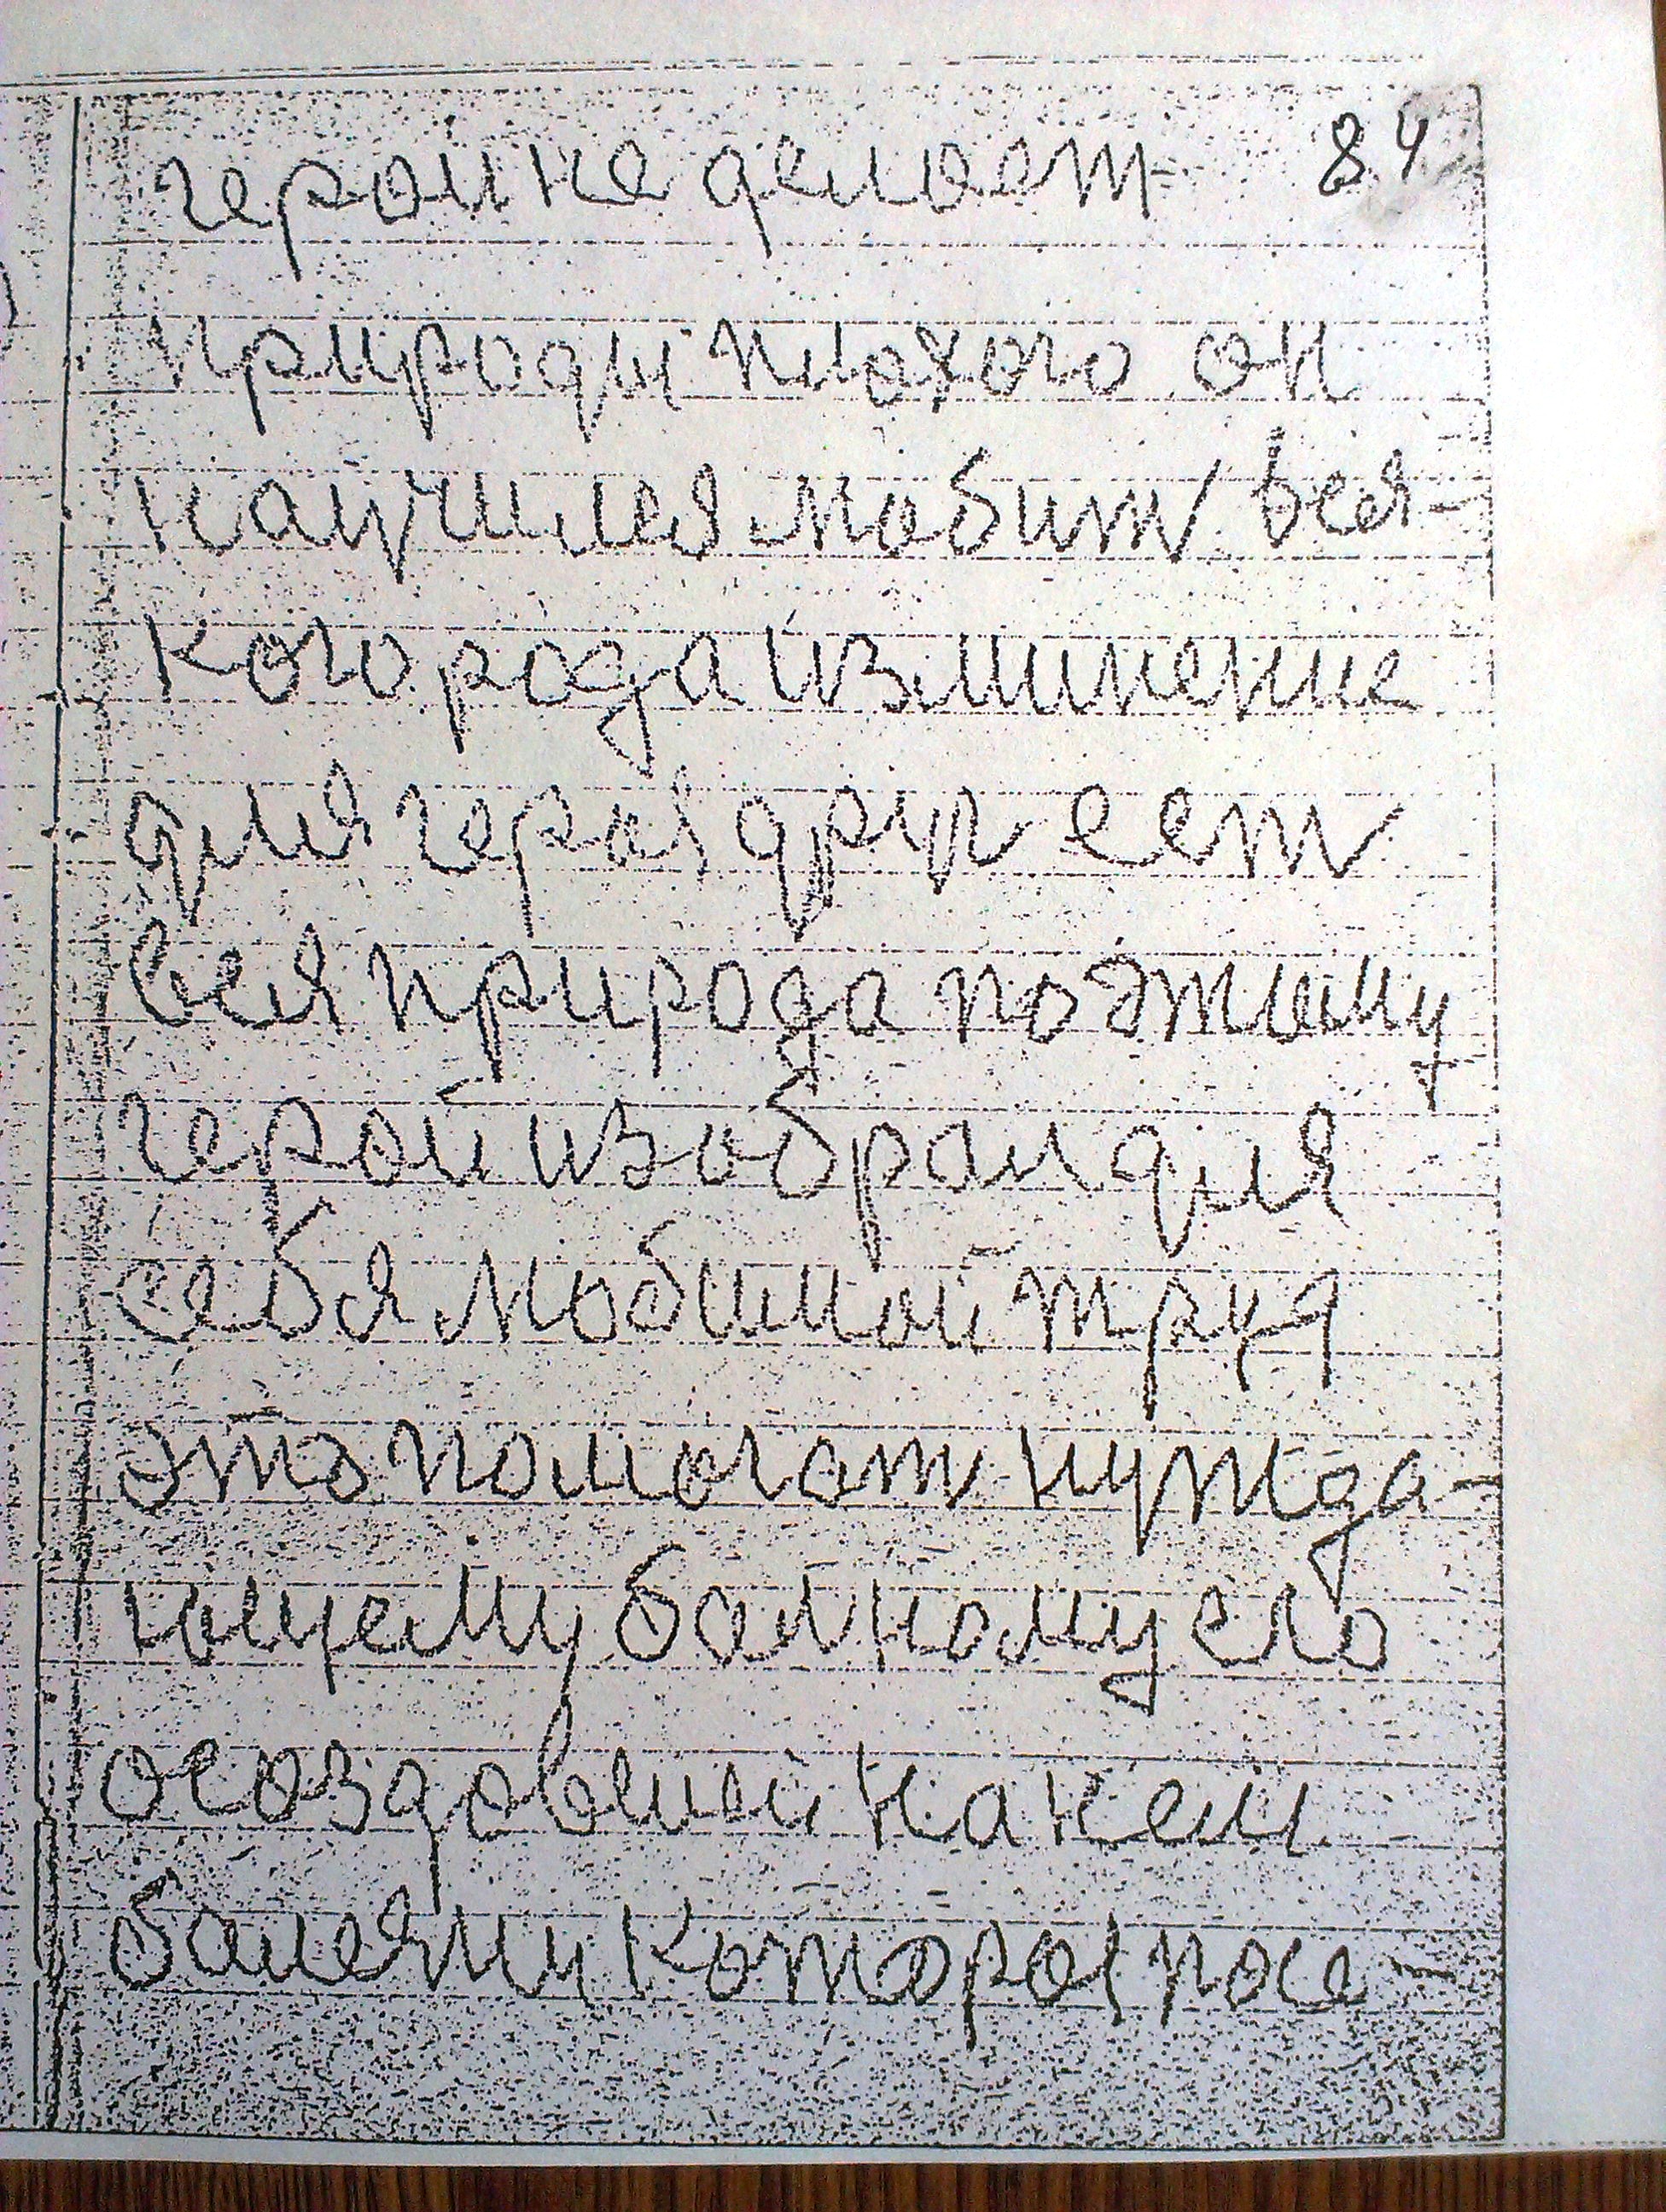 герой не делоет 84
природы плохого он
научился любит вся-
кого рода изминение
для героя друг еет
вся природа по этиму
герой избрал для
себя любимой труд
это помогат нужда-
ющему больному его
оздовлений на нем
болезни которое после-